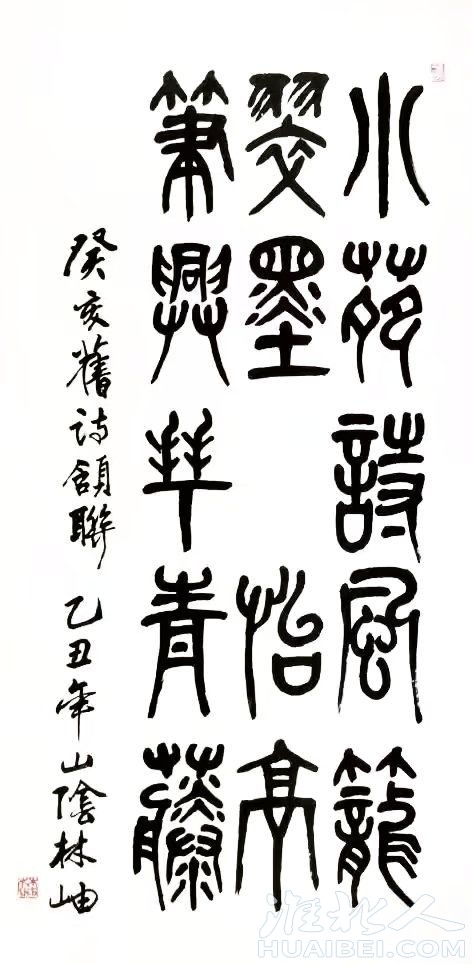 水苑詩風籠
翠墨 怡亭
筆興青藤
癸亥舊詩頷聯 乙丑年山陰林岫
淮北人
HUAIBEI.COM